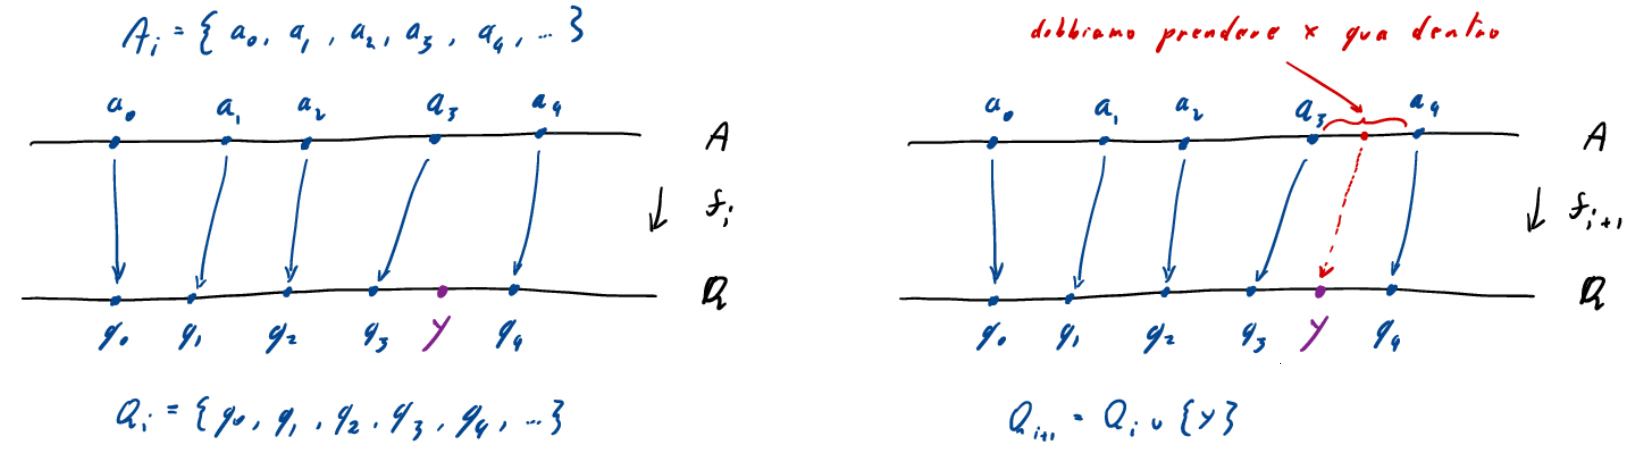 A_i = { a_0, a_1, a_2, a_3, a_4, ... }
a_0 a_1 a_2 a_3 a_4
A
f_i
q_0 q_1 q_2 q_3 y q_4
Q
Q_i = { q_0, q_1, q_2, q_3, q_4, ... }
dobbiamo prendere x qua dentro
a_0 a_1 a_2 a_3 a_4
A
f_{i+1}
Q
q_0 q_1 q_2 q_3 y q_4
Q_{i+1} = Q_i ∪ {y}